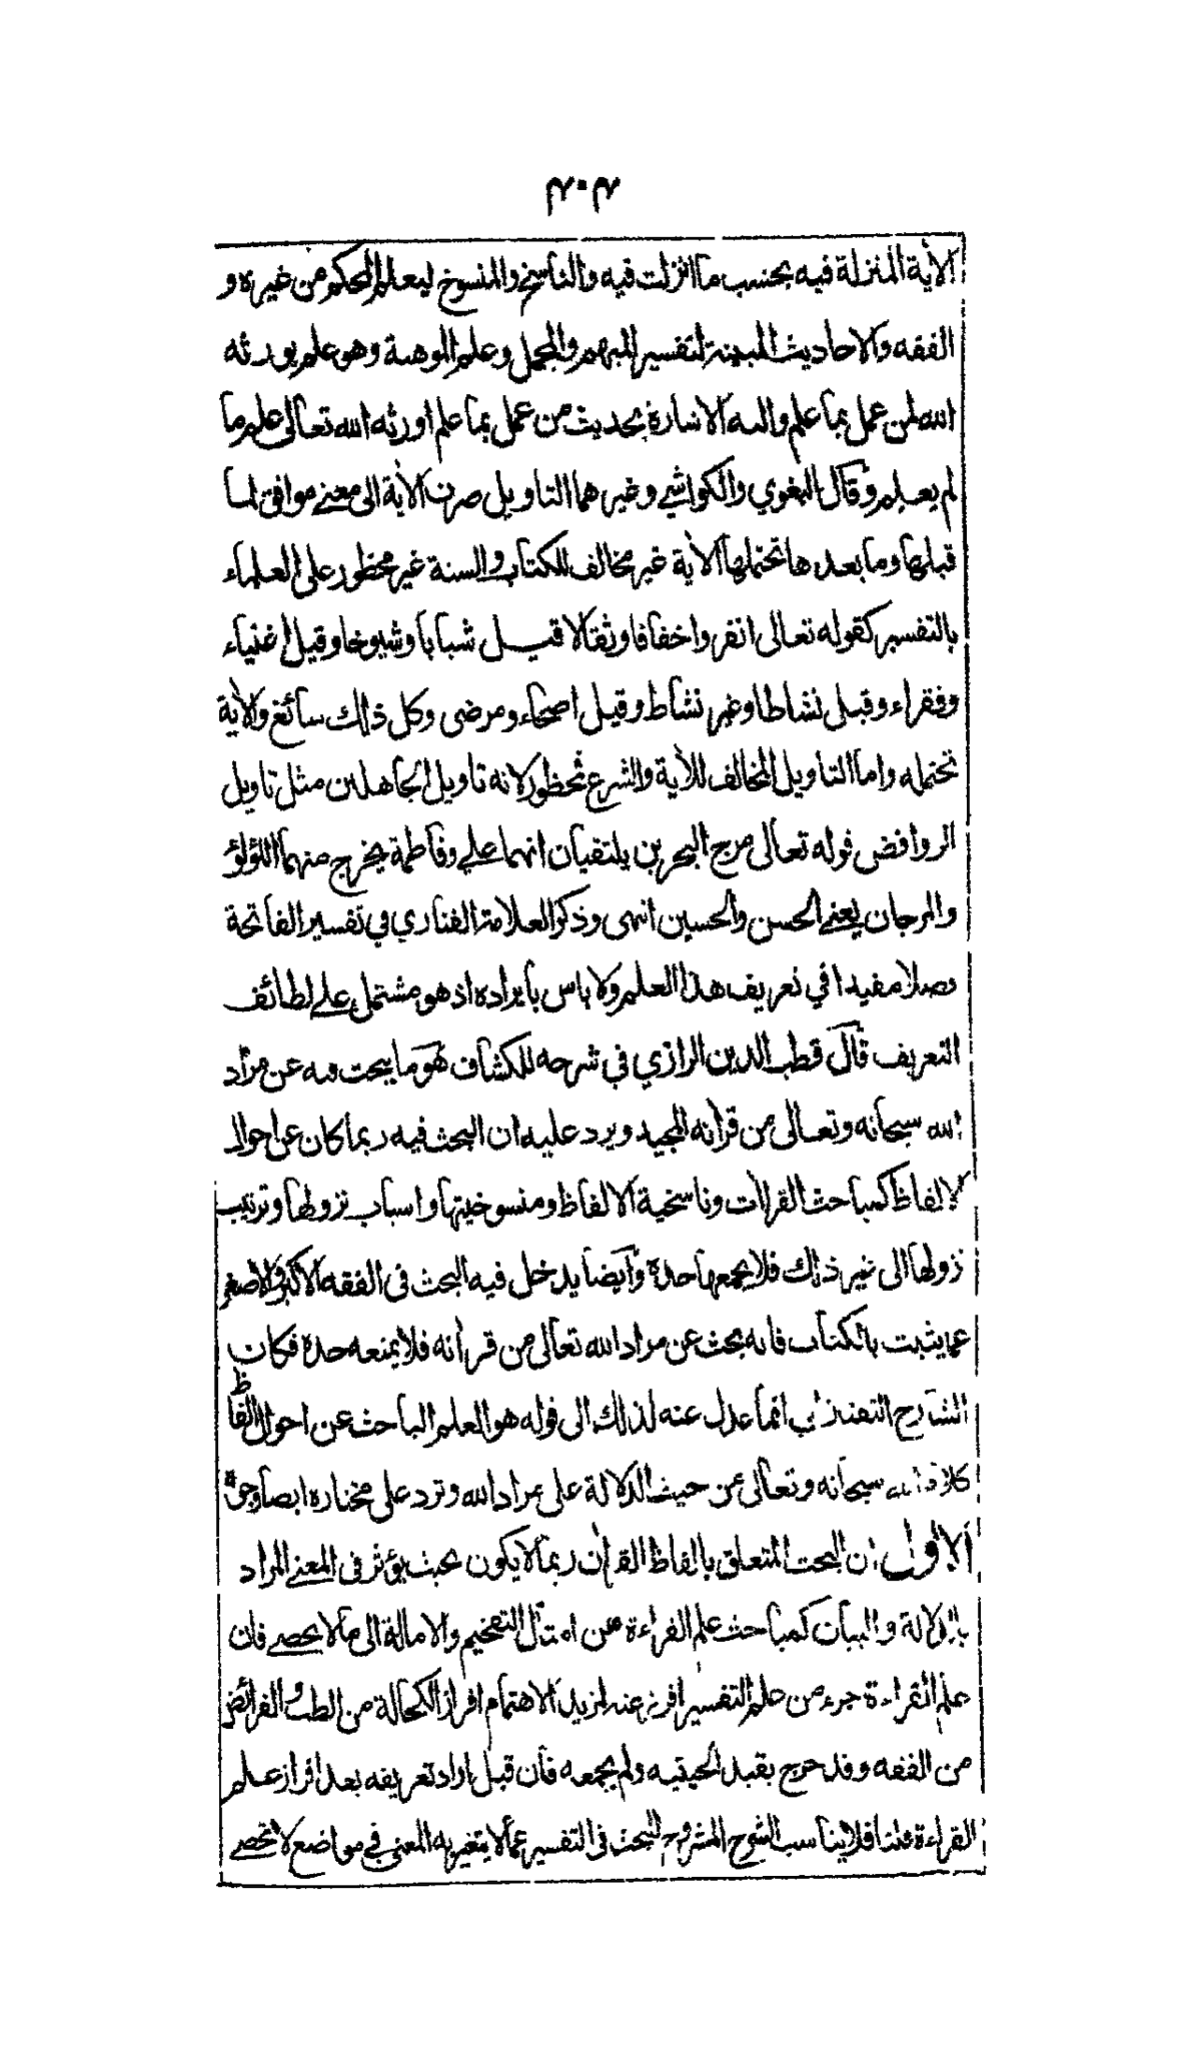 ٢٠٢
الآية المنزلة فيه بحسب ما انزلت فيه والناسخ والمنسوخ ليعلم المحكم من غيره و
الفقه والاحاديث المبينة لتفسير المبهم والمجمل وعلم الموهبة وهو علم يورثه
الله لمن عمل بما علم واليه الاشارة بحديث من عمل بما علم اورثه الله تعالى علم ما
لم يعلم وقال البغوي والكواشي وغيرهما التاويل صرف الآية الى معنى موافق لما
قبلها وما بعدها تحتملها الآية غير مخالف للكتاب والسنة غير محظور على العلماء
بالتفسير كقوله تعالى انفروا خفافا وثقالا قيل شبابا وشيوخا وقيل اغنياء
وفقراء وقيل نشاطا وغير نشاط وقيل اصحاء ومرضى وكل ذلك سائغ والآية
تحتمله واما التاويل المخالف للآية والشرع فمحظور لانه تاويل الجاهلين مثل تاويل
الروافض قوله تعالى مرج البحرين يلتقيان انهما علي وفاطمة يخرج منهما اللؤلؤ
والمرجان يعني الحسن والحسين انتهى وذكر العلامة الفناري في تفسير الفاتحة
فصلا مفيدا في تعريف هذا العلم ولا باس بايراده اذ هو مشتمل على لطائف
التعريف قال قطب الدين الرازي في شرحه للكشاف هو ما يبحث فيه عن مراد
الله سبحانه وتعالى من قرآنه المجيد ويرد عليه ان البحث فيه ربما كان عن احوال
الالفاظ كمباحث القراآت وناسخية الالفاظ ومنسوخيتها واسباب نزولها وترتيب
نزولها الى غير ذلك فلا يجمعها حده وايضا يدخل فيه البحث في الفقه الاكبر والاصغر
عما يثبت بالكتاب فانه بحث عن مراد الله تعالى من قرآنه فلا يمنعه حده فكان
الشارح التفتازاني انما عدل عنه لذلك الى قوله هو العلم الباحث عن احوال الفاظ
كلام الله سبحانه وتعالى من حيث الدلالة على مراد الله وترد على مختاره ايضا وجوه
الاول ان البحث المتعلق بالفاظ القرآن ربما لا يكون بحيث يؤثر في المعنى المراد
بالدلالة والبيان كمباحث علم القراءة عن امثال التفخيم والامالة الى ما لا يحصى فان
علم القراءة جزء من علم التفسير افرز عنه لمزيد الاهتمام افراز الكحالة من الطب والفرائض
من الفقه وقد خرج بقيد الحيثية ولم يجمعه فان قيل اراد تعريفه بعد افراز علم
القراءة قلنا فلا يناسب الشرح المشروح للبحث في التفسير عما لا يتغير به المعنى في مواضع لا تحصى